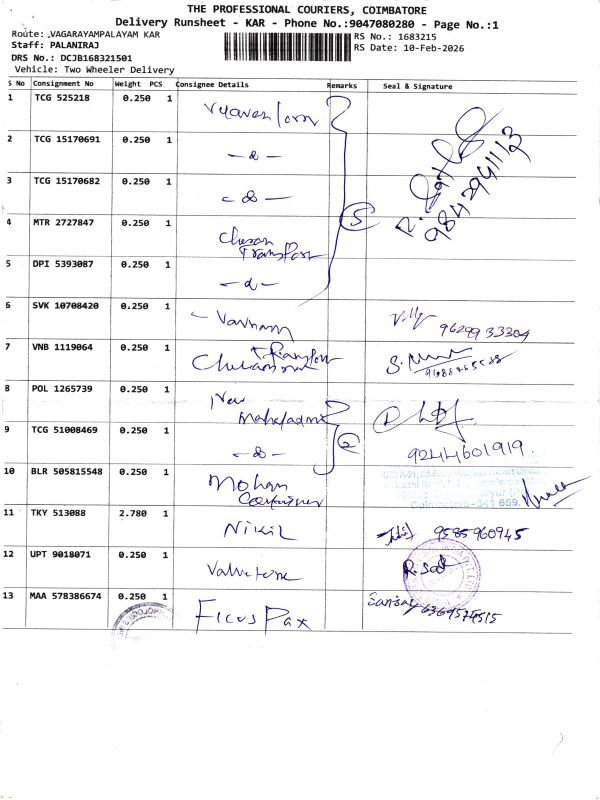 THE PROFESSIONAL COURIERS, COIMBATORE
Delivery Runsheet - KAR - Phone No.:9047080280 - Page No.:1
Route: .VAGARAYAMPALAYAM KAR
Staff: PALANIRAJ
DRS No.: DCJB168321501
Vehicle: Two Wheeler Delivery
RS No.: 1683215
RS Date: 10-Feb-2026
S No Consignment No Weight PCS Consignee Details Remarks Seal & Signature
1 TCG 525218 0.250 1
2 TCG 15170691 0.250 1
3 TCG 15170682 0.250 1
5
9842941113
4 MTR 2727847 0.250 1 Transport
5 DPI 5393087 0.250 1
6 SVK 10708420 0.250 1 Varnam 9629933304
7 VNB 1119064 0.250 1 Transport
8 POL 1265739 0.250 1 New
9 TCG 51008469 0.250 1 2 9244601919
10 BLR 505815548 0.250 1 Mohan
Coimbatore-641 659.
11 TKY 513088 2.780 1 Nikil 9585960945
12 UPT 9018071 0.250 1
13 MAA 578386674 0.250 1 Ficus Pax Sanjay 6369574515